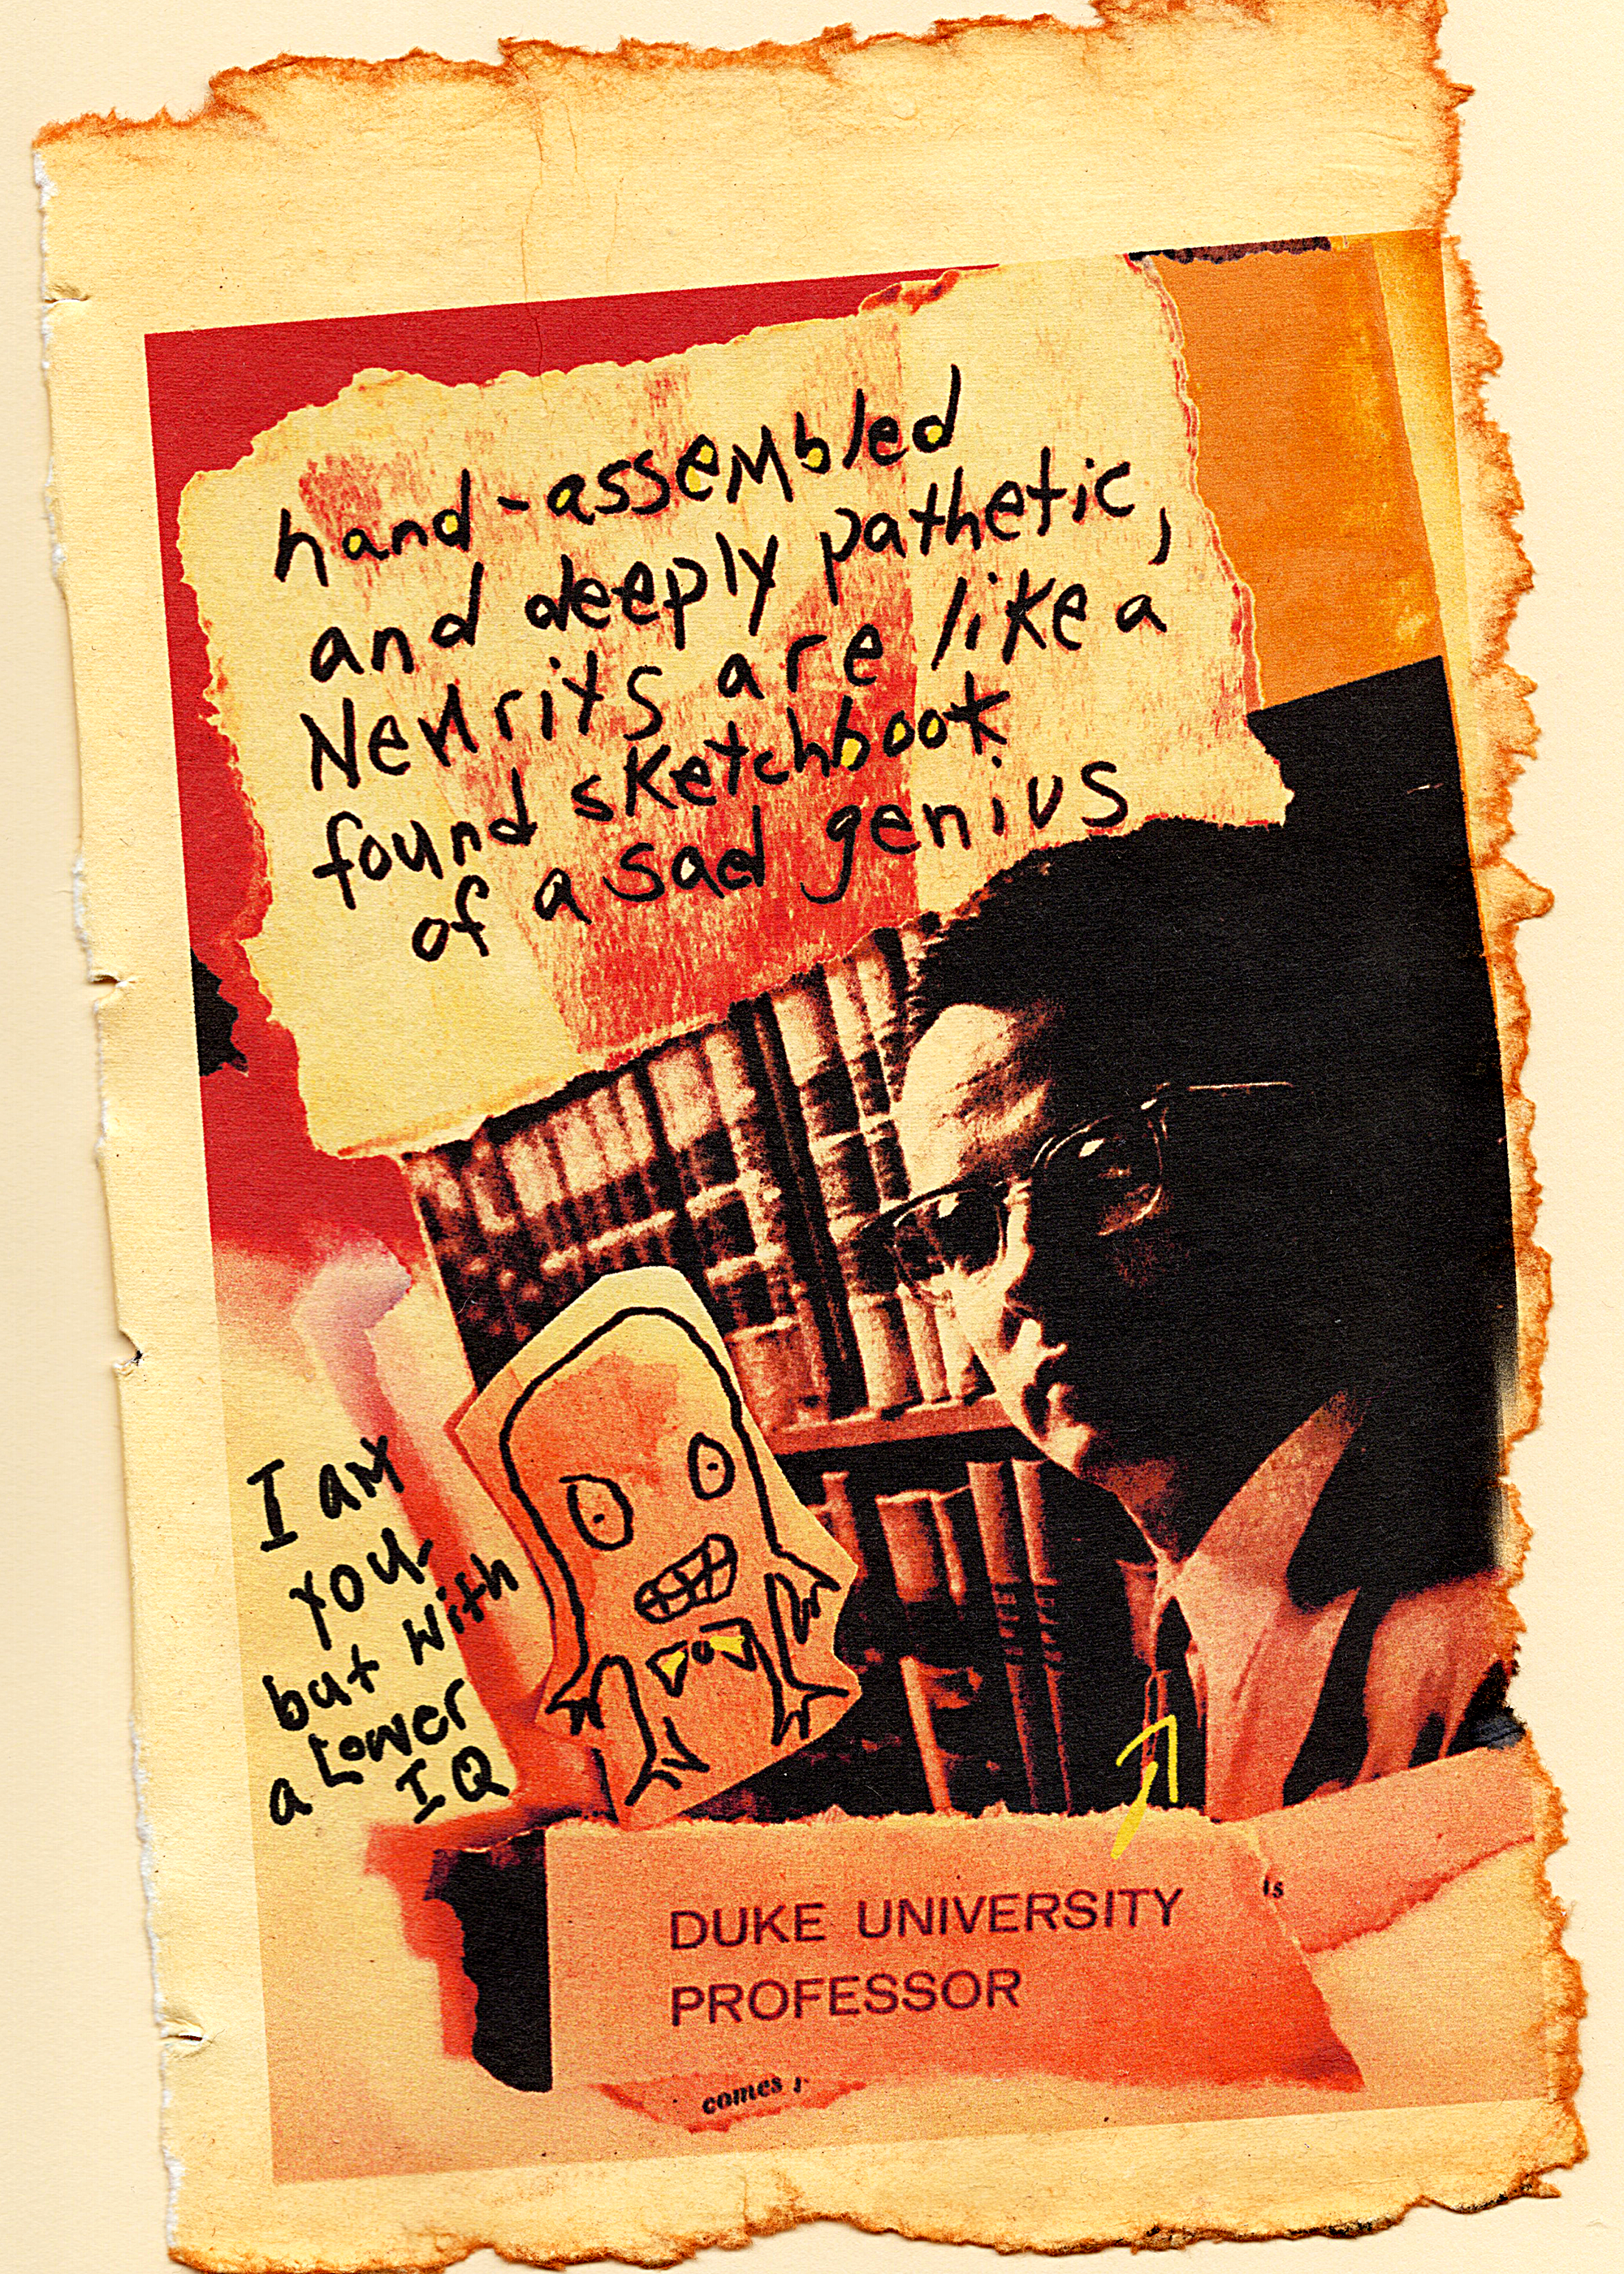 hand-assembled
and deeply pathetic,
are like a
found sketchbook
of a sad genius
I am
you-
but with
a Lower
IQ
DUKE UNIVERSITY
PROFESSOR
is
comes